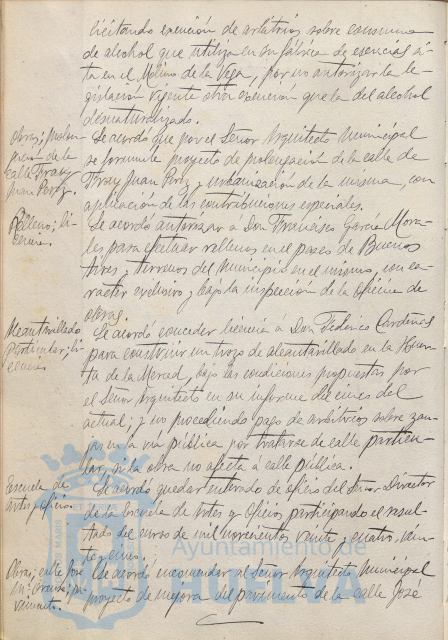 licitando exención de arbitrios sobre consumo
de alcohol que utiliza en su fábrica de esencias si-
ta en el Molino de la Vega, por no autorizar la le-
gislación vigente otra exención que la del alcohol
desnaturalizado.
Obras; prolon-
gación de la
calle Fray
Juan Perez.
Se acordó que por el Señor Arquitecto Municipal
se formule proyecto de prolongación de la calle de
Fray Juan Perez y urbanización de la misma, con
aplicación de las contribuciones especiales.
Relleno; li-
cencia.
Se acordó autorizar a Don Francisco Garcia Mora-
les para efectuar rellenos en el paseo de Buenos
Aires, y terrenos del Municipio en el mismo, con ca-
racter exclusivo y bajo la inspección de la Oficina de
obras.
Alcantarillado
particular; li-
cencia.
Se acordó conceder licencia a Don Federico Cardenas
para construir un trozo de alcantarillado en la Huer-
ta de la Merced, bajo las condiciones propuestas por
el Señor Arquitecto en su informe del cinco del
actual; y no procediendo pago de arbitrios sobre zan-
jas en la vía pública por tratarse de calle particu-
lar, si la obra no afecta a calle pública.
Escuela de
Artes y Oficios.
Se acordó quedar enterado de oficio del Señor Director
de la Escuela de Artes y Oficios participando el resul-
tado del curso de mil novecientos veinte y cuatro, vein-
te y cinco.
Obras; calle José
pa-
vimento.
Se acordó encomendar al Señor Arquitecto Municipal
proyecto de mejora del pavimento de la calle José
Ayuntamiento de
HUELVA